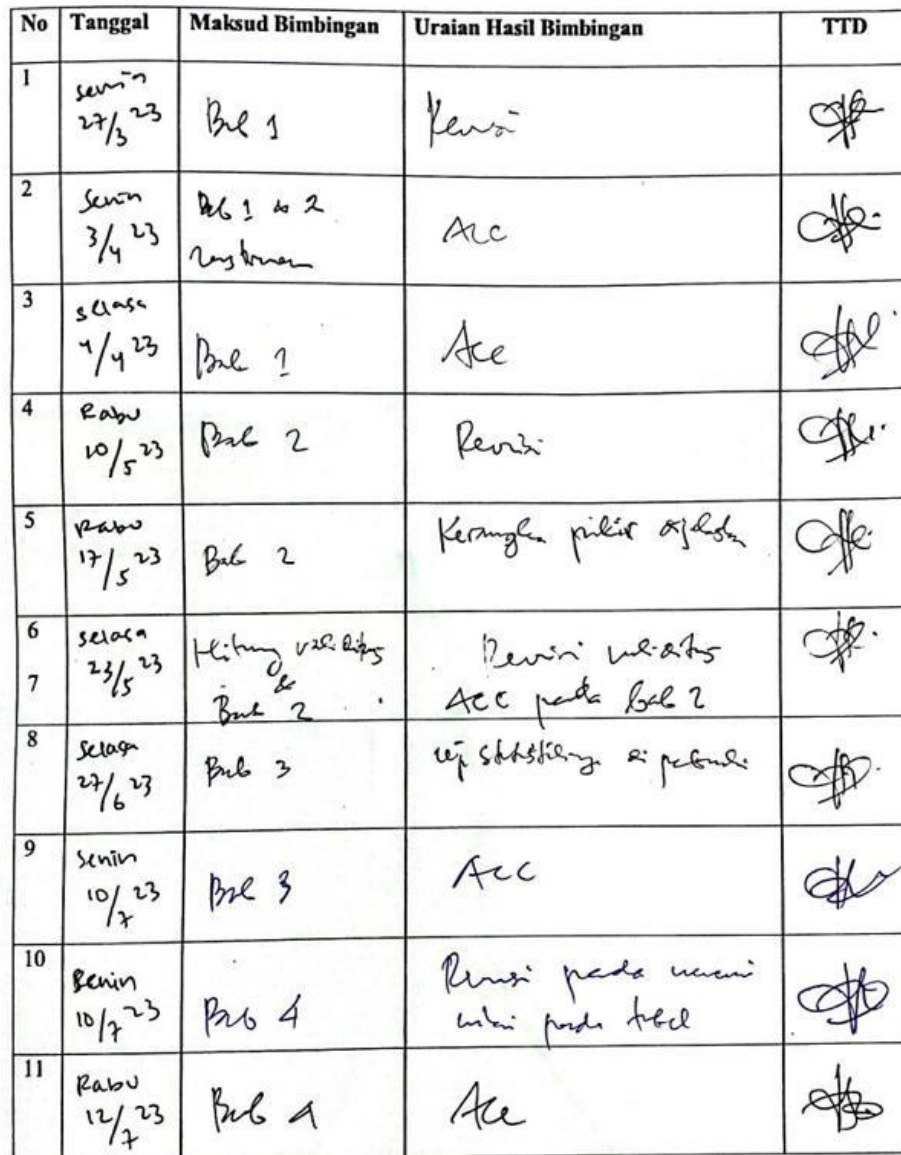 No Tanggal Maksud Bimbingan Uraian Hasil Bimbingan TTD
1 Senin 27/3 23 Bab 1 Revisi
2 Senin 3/4 23 Bab 1 & 2 Acc
3 Selasa 4/4 23 Bab 1 Acc
4 Rabu 10/5 23 Bab 2 Revisi
5 Rabu 17/5 23 Bab 2 Kerangka pikir
6 Selasa 23/5 23 Hitung validitas Revisi validitas
7 & Bab 2 ACC pada bab 2
8 Selasa 27/6 23 Bab 3 di
9 Senin 10/7 23 Bab 3 Acc
10 Senin 10/7 23 Bab 4 Revisi pada
pada tabel
11 Rabu 12/7 23 Bab 4 Acc